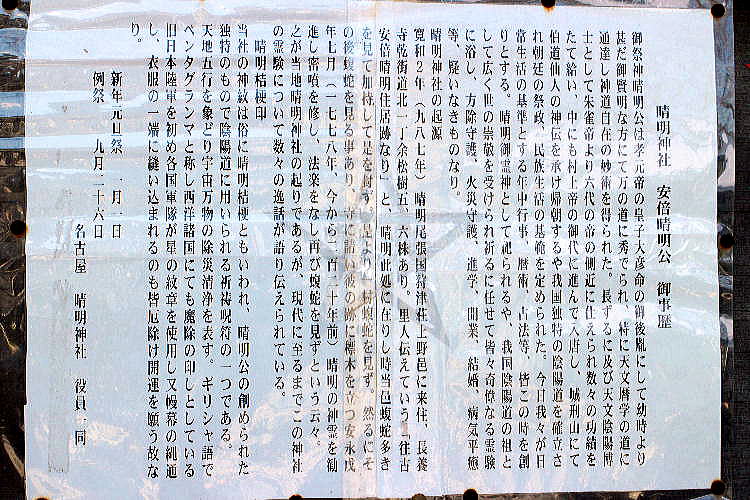 晴明神社 安倍晴明公 御事歴
御祭神晴明公は孝元帝の皇子大彦命の御後胤にして幼時より
甚だ御賢明な方にて万の道に秀でられ、絆に天文暦学の道に
通達し神道自在の妙術を得られた。長ずるに及び天文陰陽博
士として朱雀帝より六代の帝の側近に仕えられ数々の功績を
たて給い、中にも村上帝の御代に進んで入唐し、城刑山にて
伯道仙人の神伝を承け帰朝するや我国独特の陰陽道を確立さ
れ朝廷の祭政、民族生活の基範を定められた。今日我々が日
常生活の基準とする年中行事、暦術、占法等、皆この時を創
りとする。晴明御霊神として祀られるや、我国陰陽道の祖と
して広く世の崇敬を受けられ祈るに任せて皆々奇僚なる霊験
に浴し、方除守護、火災守護、進学、開業、結婚、病気平癒
等、疑いなきものなり。
晴明神社の起源
寛和2年(九八七年)晴明尾張国狩津荘上野邑に来住、長養
寺乾街道北一丁余松樹五、六株あり。里人伝えていう「往古
安倍晴明住居跡なり」と、晴明此処に在りし時当邑蝮蛇多き
を見て加持して是を封ず。是より一村蝮蛇を見ず。然るにそ
の後蝮蛇を見る事あり、立に請い彼の跡に標木を立つ安永戊
年七月(一七七八年、今から二百二十年前)晴明の神霊を勧
進し密噴を修し、法楽をなし再び蝮蛇を見ずという云々。
之が当地晴明神社の起りであるが、現代に至るまでこの神社
の霊験について数々の逸話が語り伝えられている。
晴明桔梗印
当社の神紋は俗に晴明桔梗ともいわれ、晴明公の創められた
独特のもので陰陽道に用いられる祈祷呪符の一つである。
天地五行を象どり宇宙万物の除災清浄を表す。ギリシャ語で
ペンタグランマと称し西洋諸国にても魔除の印しとしている
旧日本陸軍を初め各国軍隊が星の紋章を使用し又幔幕の縄通
し、衣服の一端に縫い込まれるのも皆厄除け開運を願う故な
り。
新年元旦祭 一月一日
例祭 九月二十六日
名古屋 晴明神社 役員一同